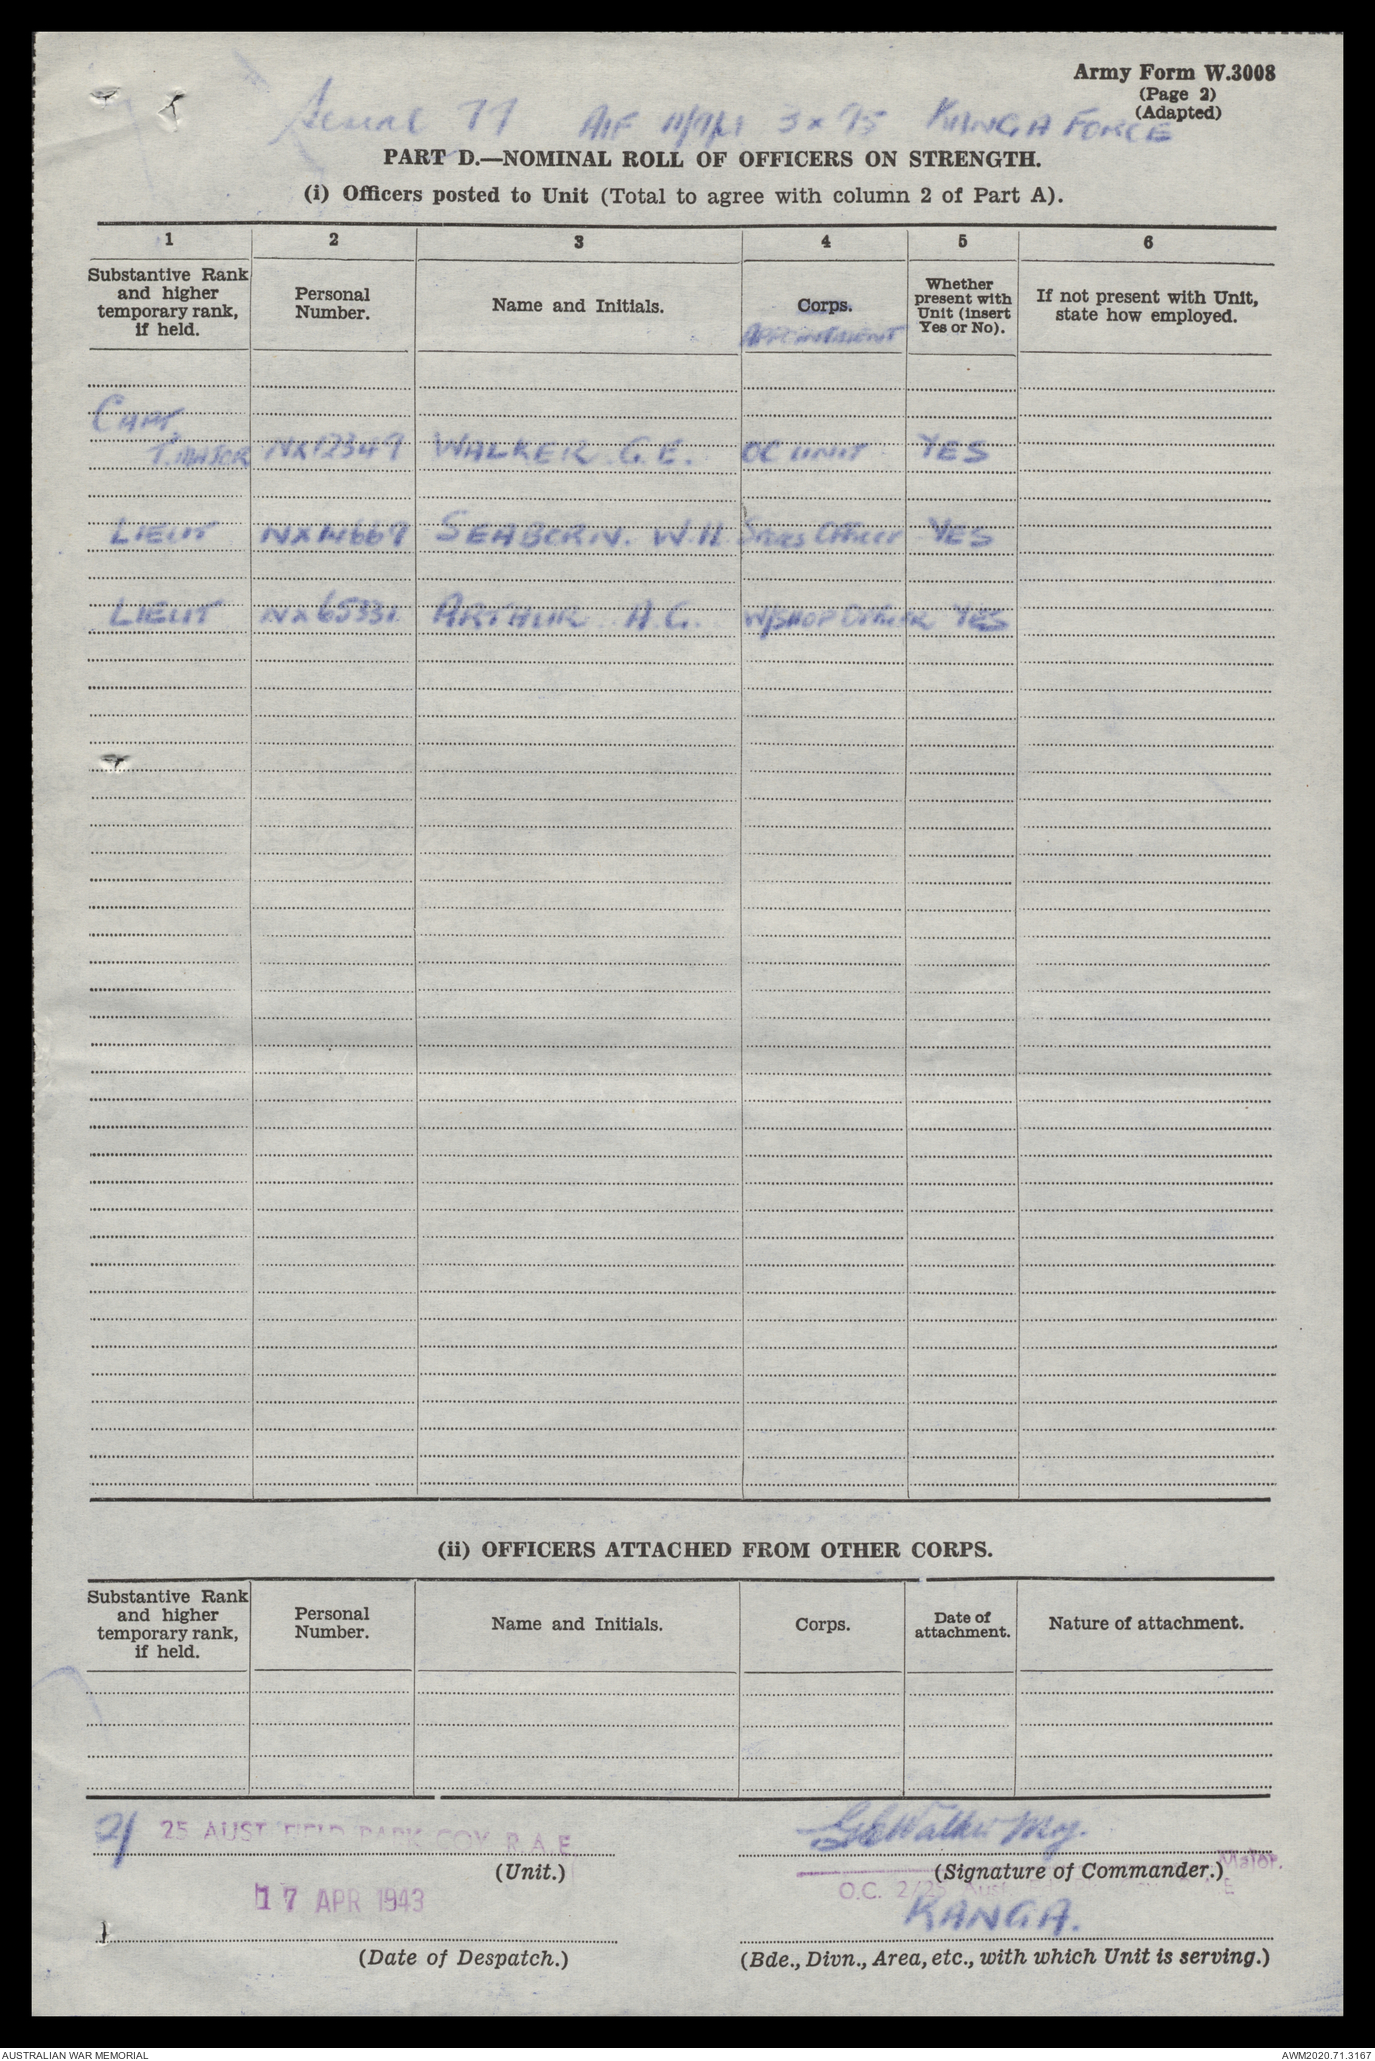 Army Form W.3008
(Page 2)
(Adapted)
Serial 77 AIF 3 x 75 KANGA FORCE
PART D.—NOMINAL ROLL OF OFFICERS ON STRENGTH.
(i) Officers posted to Unit (Total to agree with column 2 of Part A).
1 2 3 4 5 6
Substantive Rank and higher temporary rank, if held. Personal Number. Name and Initials. Corps. APPOINTMENT Whether present with Unit (insert Yes or No). If not present with Unit, state how employed.
CAPT.
T. MAJOR NX12347 WALKER G.E. OC UNIT YES
LIEUT NX14667 SEABORN. W.H. Stores Officer YES
LIEUT NX65331 ARTHUR A.G. W/SHOP OFFICER YES
(ii) OFFICERS ATTACHED FROM OTHER CORPS.
Substantive Rank and higher temporary rank, if held. Personal Number. Name and Initials. Corps. Date of attachment. Nature of attachment.
2/ 25 AUST FIELD PARK COY R.A.E. GE Walker Maj.
(Unit.) (Signature of Commander.) Major.
17 APR 1943 O.C. 2/25 Aust E
KANGA.
(Date of Despatch.) (Bde., Divn., Area, etc., with which Unit is serving.)
AUSTRALIAN WAR MEMORIAL AWM2020.71.3167